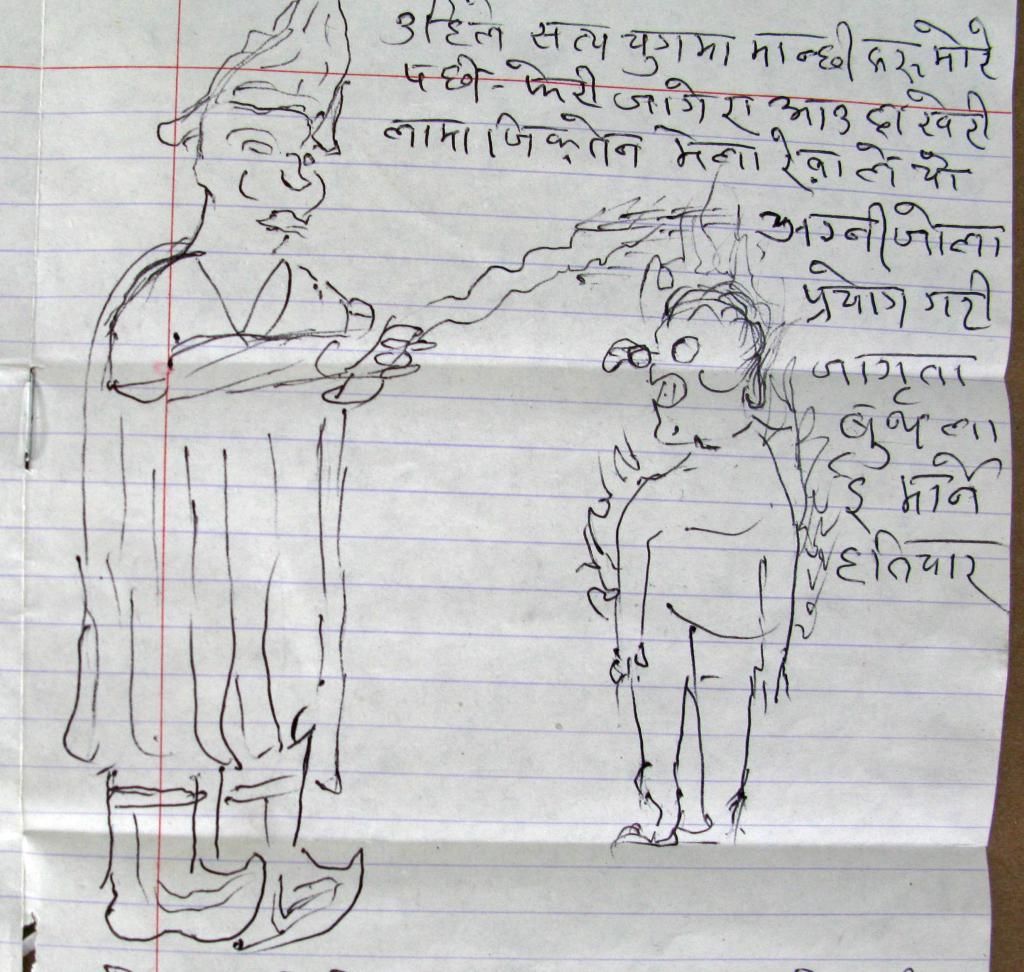 उहिले सत्य युगमा मान्छी करू मोरे
पछी- फेरी जागेरा आउदा खेरी
लामा जिक्तेन मेला रेन्रा ले यो
अग्नी जोला
प्रयोग गरी
जागृता
बुम्थ ला
इ मार्ने
हतियार